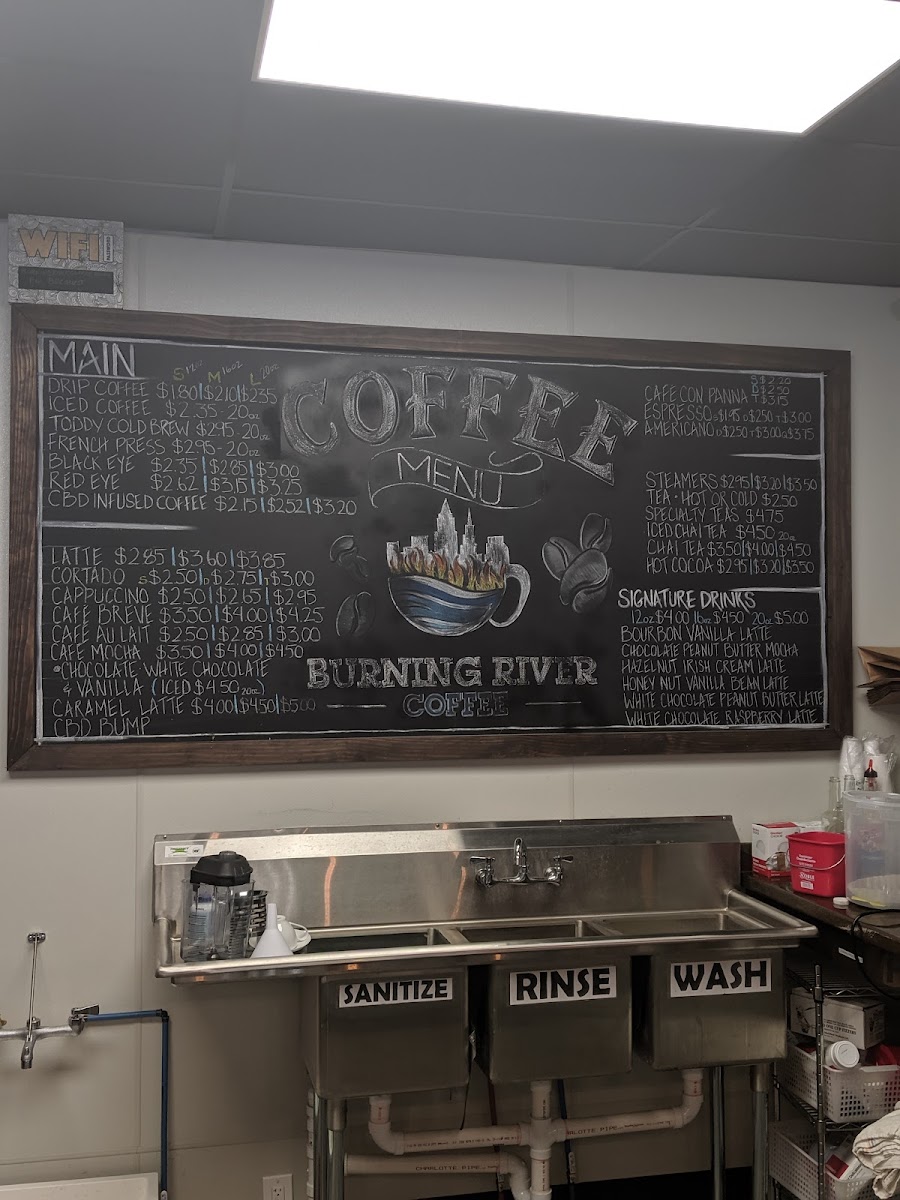 WIFI
MAIN
S 12oz M 16oz L 20oz
DRIP COFFEE $1.80|$2.10|$2.35
ICED COFFEE $2.35 - 20oz
TODDY COLD BREW $2.95 - 20oz
FRENCH PRESS $2.95 - 20oz
BLACK EYE $2.35|$2.85|$3.00
RED EYE $2.62|$3.15|$3.25
CBD INFUSED COFFEE $2.15|$2.52|$3.20
LATTE $2.85|$3.60|$3.85
CORTADO S $2.50|D $2.75|T $3.00
CAPPUCCINO $2.50|$2.65|$2.95
CAFÉ BREVE $3.50|$4.00|$4.25
CAFÉ AU LAIT $2.50|$2.85|$3.00
CAFÉ MOCHA $3.50|$4.00|$4.50
*CHOCOLATE, WHITE CHOCOLATE
& VANILLA (ICED $4.50 20oz)
CARAMEL LATTE $4.00|$4.50|$5.00
CBD BUMP
COFFEE
MENU
BURNING RIVER
COFFEE
S $2.20
D $2.50
CAFE CON PANNA T $3.15
ESPRESSO S $1.95 D $2.50 T $3.00
AMERICANO D $2.50 T $3.00 Q $3.75
STEAMERS $2.95|$3.20|$3.50
TEA · HOT OR COLD $2.50
SPECIALTY TEAS $4.75
ICED CHAI TEA $4.50 20oz
CHAI TEA $3.50|$4.00|$4.50
HOT COCOA $2.95|$3.20|$3.50
SIGNATURE DRINKS
12oz $4.00 16oz $4.50 20oz $5.00
BOURBON VANILLA LATTE
CHOCOLATE PEANUT BUTTER MOCHA
HAZELNUT IRISH CREAM LATTE
HONEY NUT VANILLA BEAN LATTE
WHITE CHOCOLATE PEANUT BUTTER LATTE
WHITE CHOCOLATE RASPBERRY LATTE
SANITIZE
RINSE
WASH
CHARLOTTE PIPE
CHARLOTTE PIPE